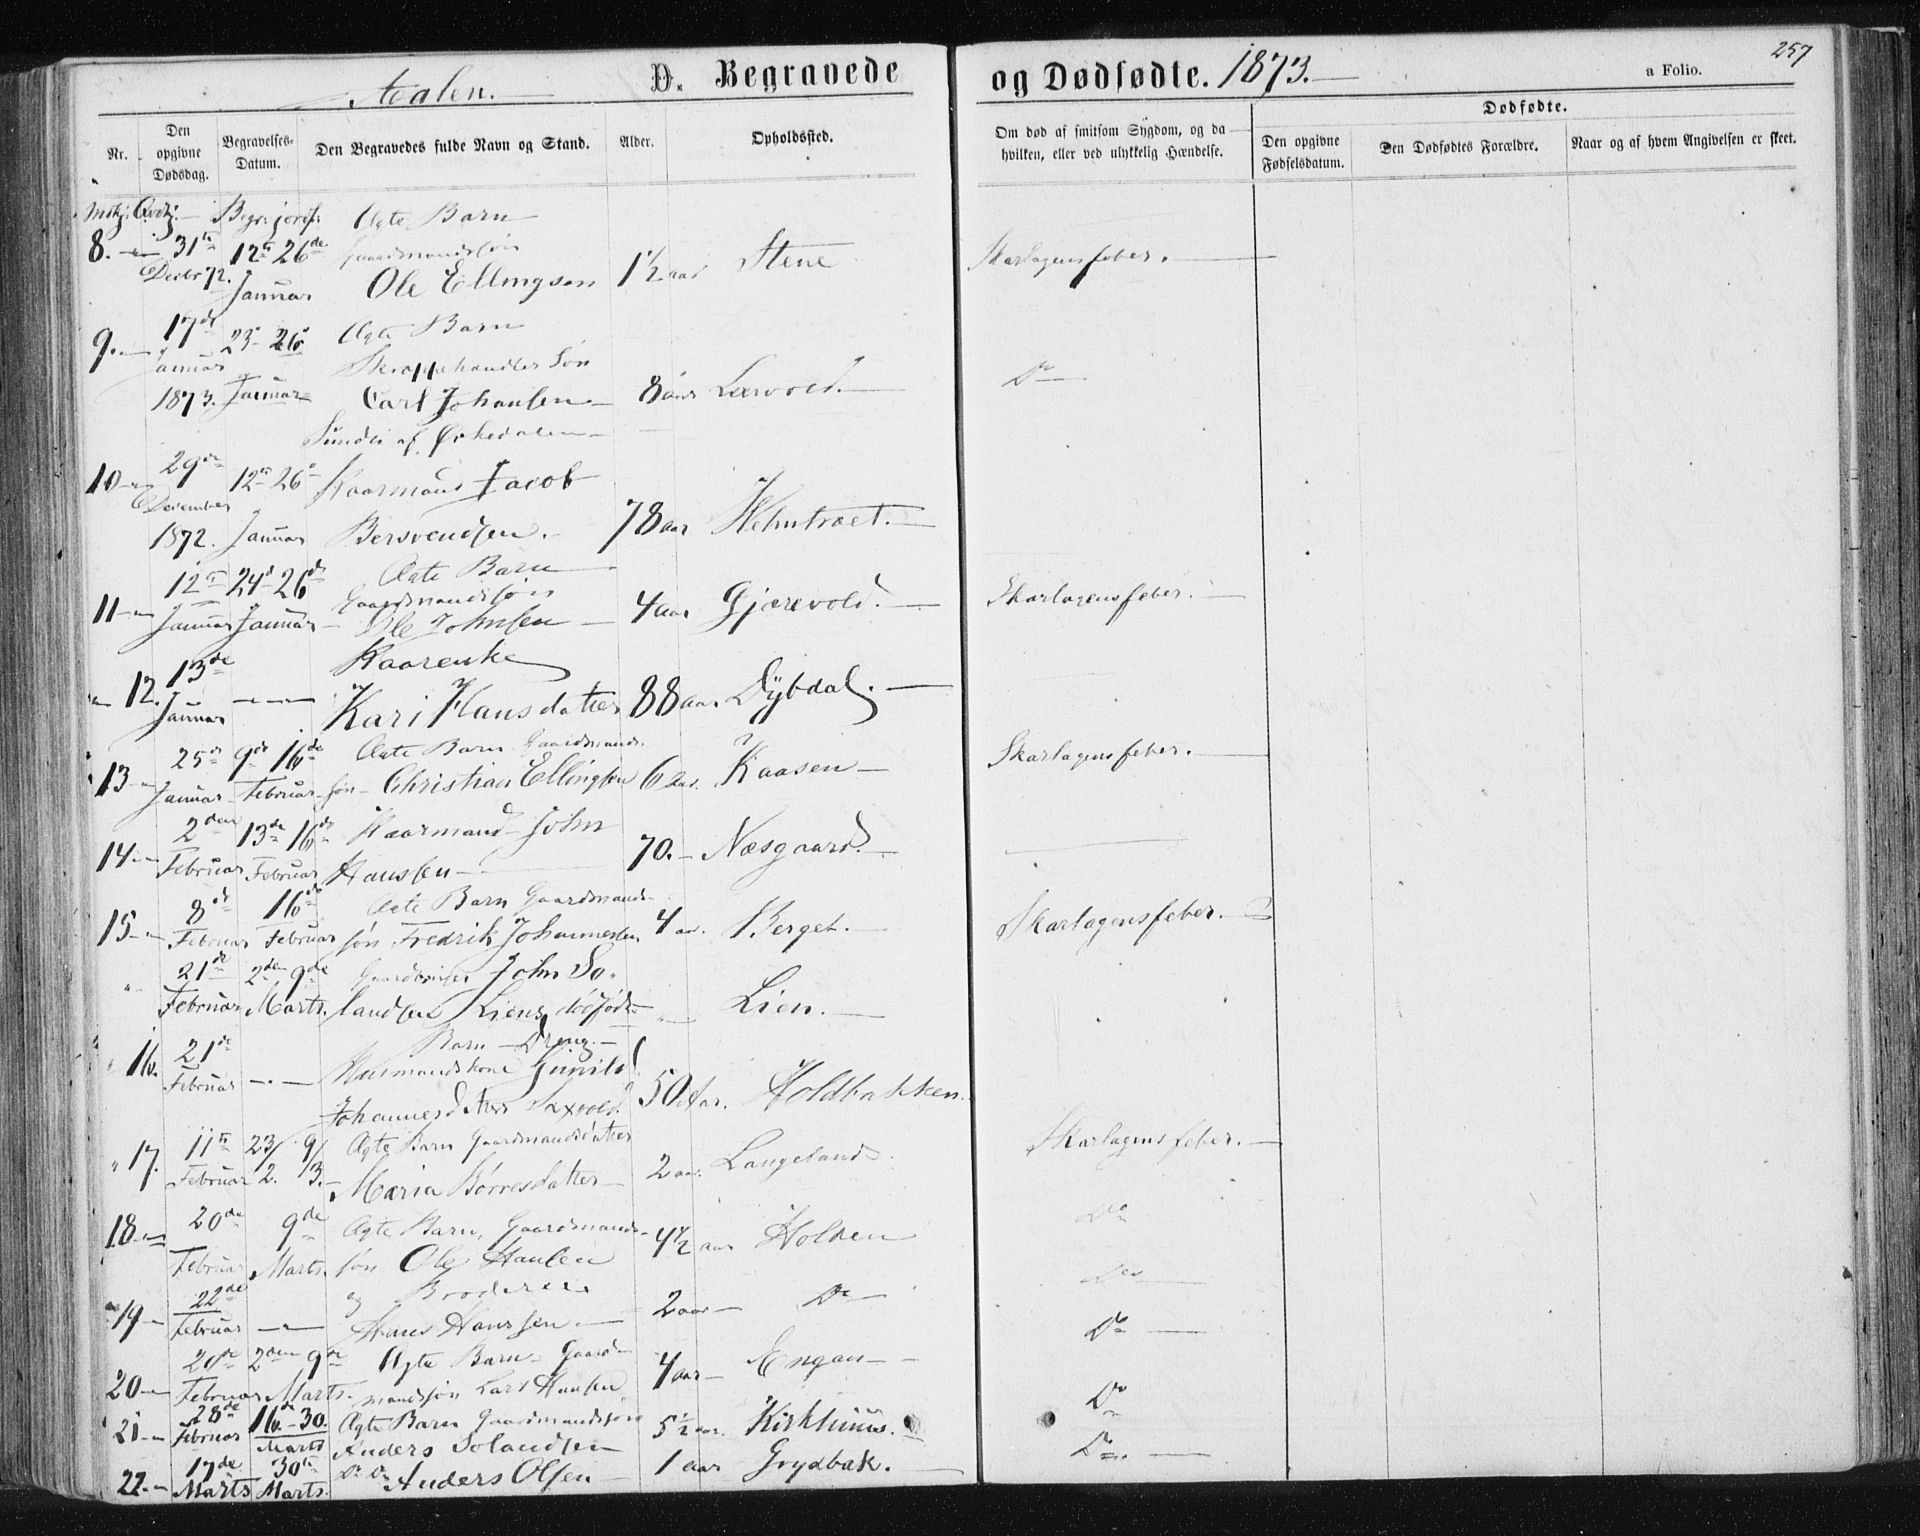 Aalen.
D. Begravede og Dødfødte. 1873.
a Folio. 257
Nr.
Den opgivne Dødsdag.
Begravelses-Datum.
Den Begravedes fulde Navn og Stand.
Alder.
Opholdssted.
Om død af smitsom Sygdom, og da hvilken, eller ved ulykkelig Hændelse.
Dødfødte.
Den opgivne Fødselsdatum.
Den Dødfødtes Forældre.
Naar og af hvem Angivelsen er skeet.
Mdkj. Qvdkj. Begr. jordf. Ægte Barn
8. 31te 12te 26de Gaardmandssøn
Decbr 72. Januar Ole Ellingsen 1½ aar Stene Skarlagensfeber.
9. 17de 23 26 Ægte Barn
Januar Skreppehandler Søn
1873. Januar Carl Johansen 8 aar Lervold. Do
af Ørkedalen
10 29de 12te 26 Kaarmand Jacob
December
1872. Januar Bersvendsen. 78 aar Hektraet.
12te 24de 26de Ægte Barn
11 Gaardmandssøn
Januar Januar Ole Johnsen 4 aar Gjærevold. Skarlagensfeber.
13de Kaarenke
12. Januar Kari Hansdatter 88 aar Dybdal.
25de 9de 16de Ægte Barn Gaardmands-
13 Januar Februar søn Christian Ellingsen 6 aar. Kaasen Skarlagensfeber.
2den 13de 16de Kaarmand John
14 Februar Februar Hansen 70. Næsgaard.
8de 16de Ægte Barn Gaardmands-
15 Februar Februar søn Fredrik Johannesen 4 aar. Berget. Skarlagensfeber.
" 21de 2den 9de John So-
Februar Marts. landsen Liens dødfødte " Lien.
Barn Dreng.
" 16. 21de Husmandskone Gunild
Februar Johannesdatter 50 Aar. Holdbakken.
" 17. 11te 23/2. 9/3. Ægte Barn Gaardmandsdatter
Februar Maria Børresdatter 2 aar. Langeland. Skarlagensfeber.
18 20de 9de Ægte Barn, Gaardmands-
Februar Marts. søn Ole Hansen 4½ aar Holden Do
og Broderen Do
19 22de Februar Hans Hanssen 2 aar Do Do
20de 2den 9de Ægte Barn Gaard-
20 Februar Marts. mandssøn Lars Hansen 4 aar Engan Do
21 28de Februar 16de 30. Marts Ægte Barn Gaardmandssøn
Anders Solandsen 5½ aar. Kirkhuus. Do
22. 17de Marts 30te Marts. Do Do Anders Olsen 1 aar Grydbæk.